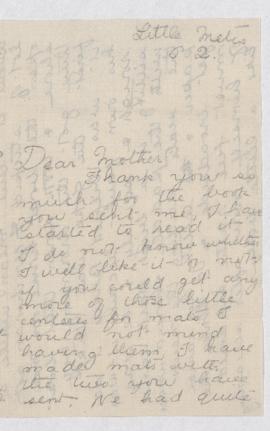 Little Metis
2.
Dear Mother
Thank you so
much for the book
you sent me, I have
started to read it
I do not know whether
I will like it or not
if you could get any
more of those little
centers for mats I
would not mind
having them, I have
made mats with
the two you have
sent We had quite